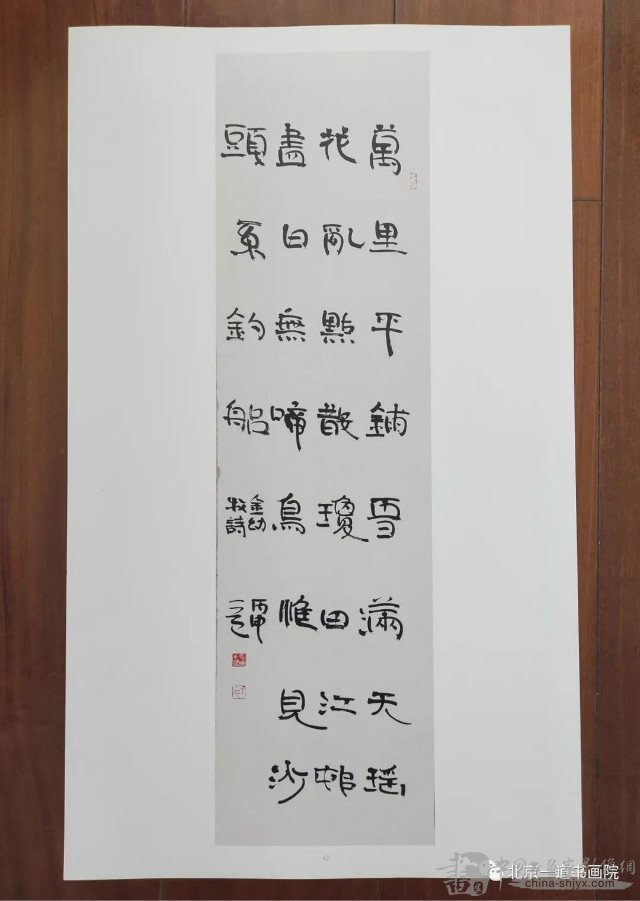 萬里平鋪雪滿天瑶
花亂點散瓊田江邨
盡日無啼鳥惟見沙
頭系釣船
金幼
孜詩
北京一道书画院
china-shjyx.com